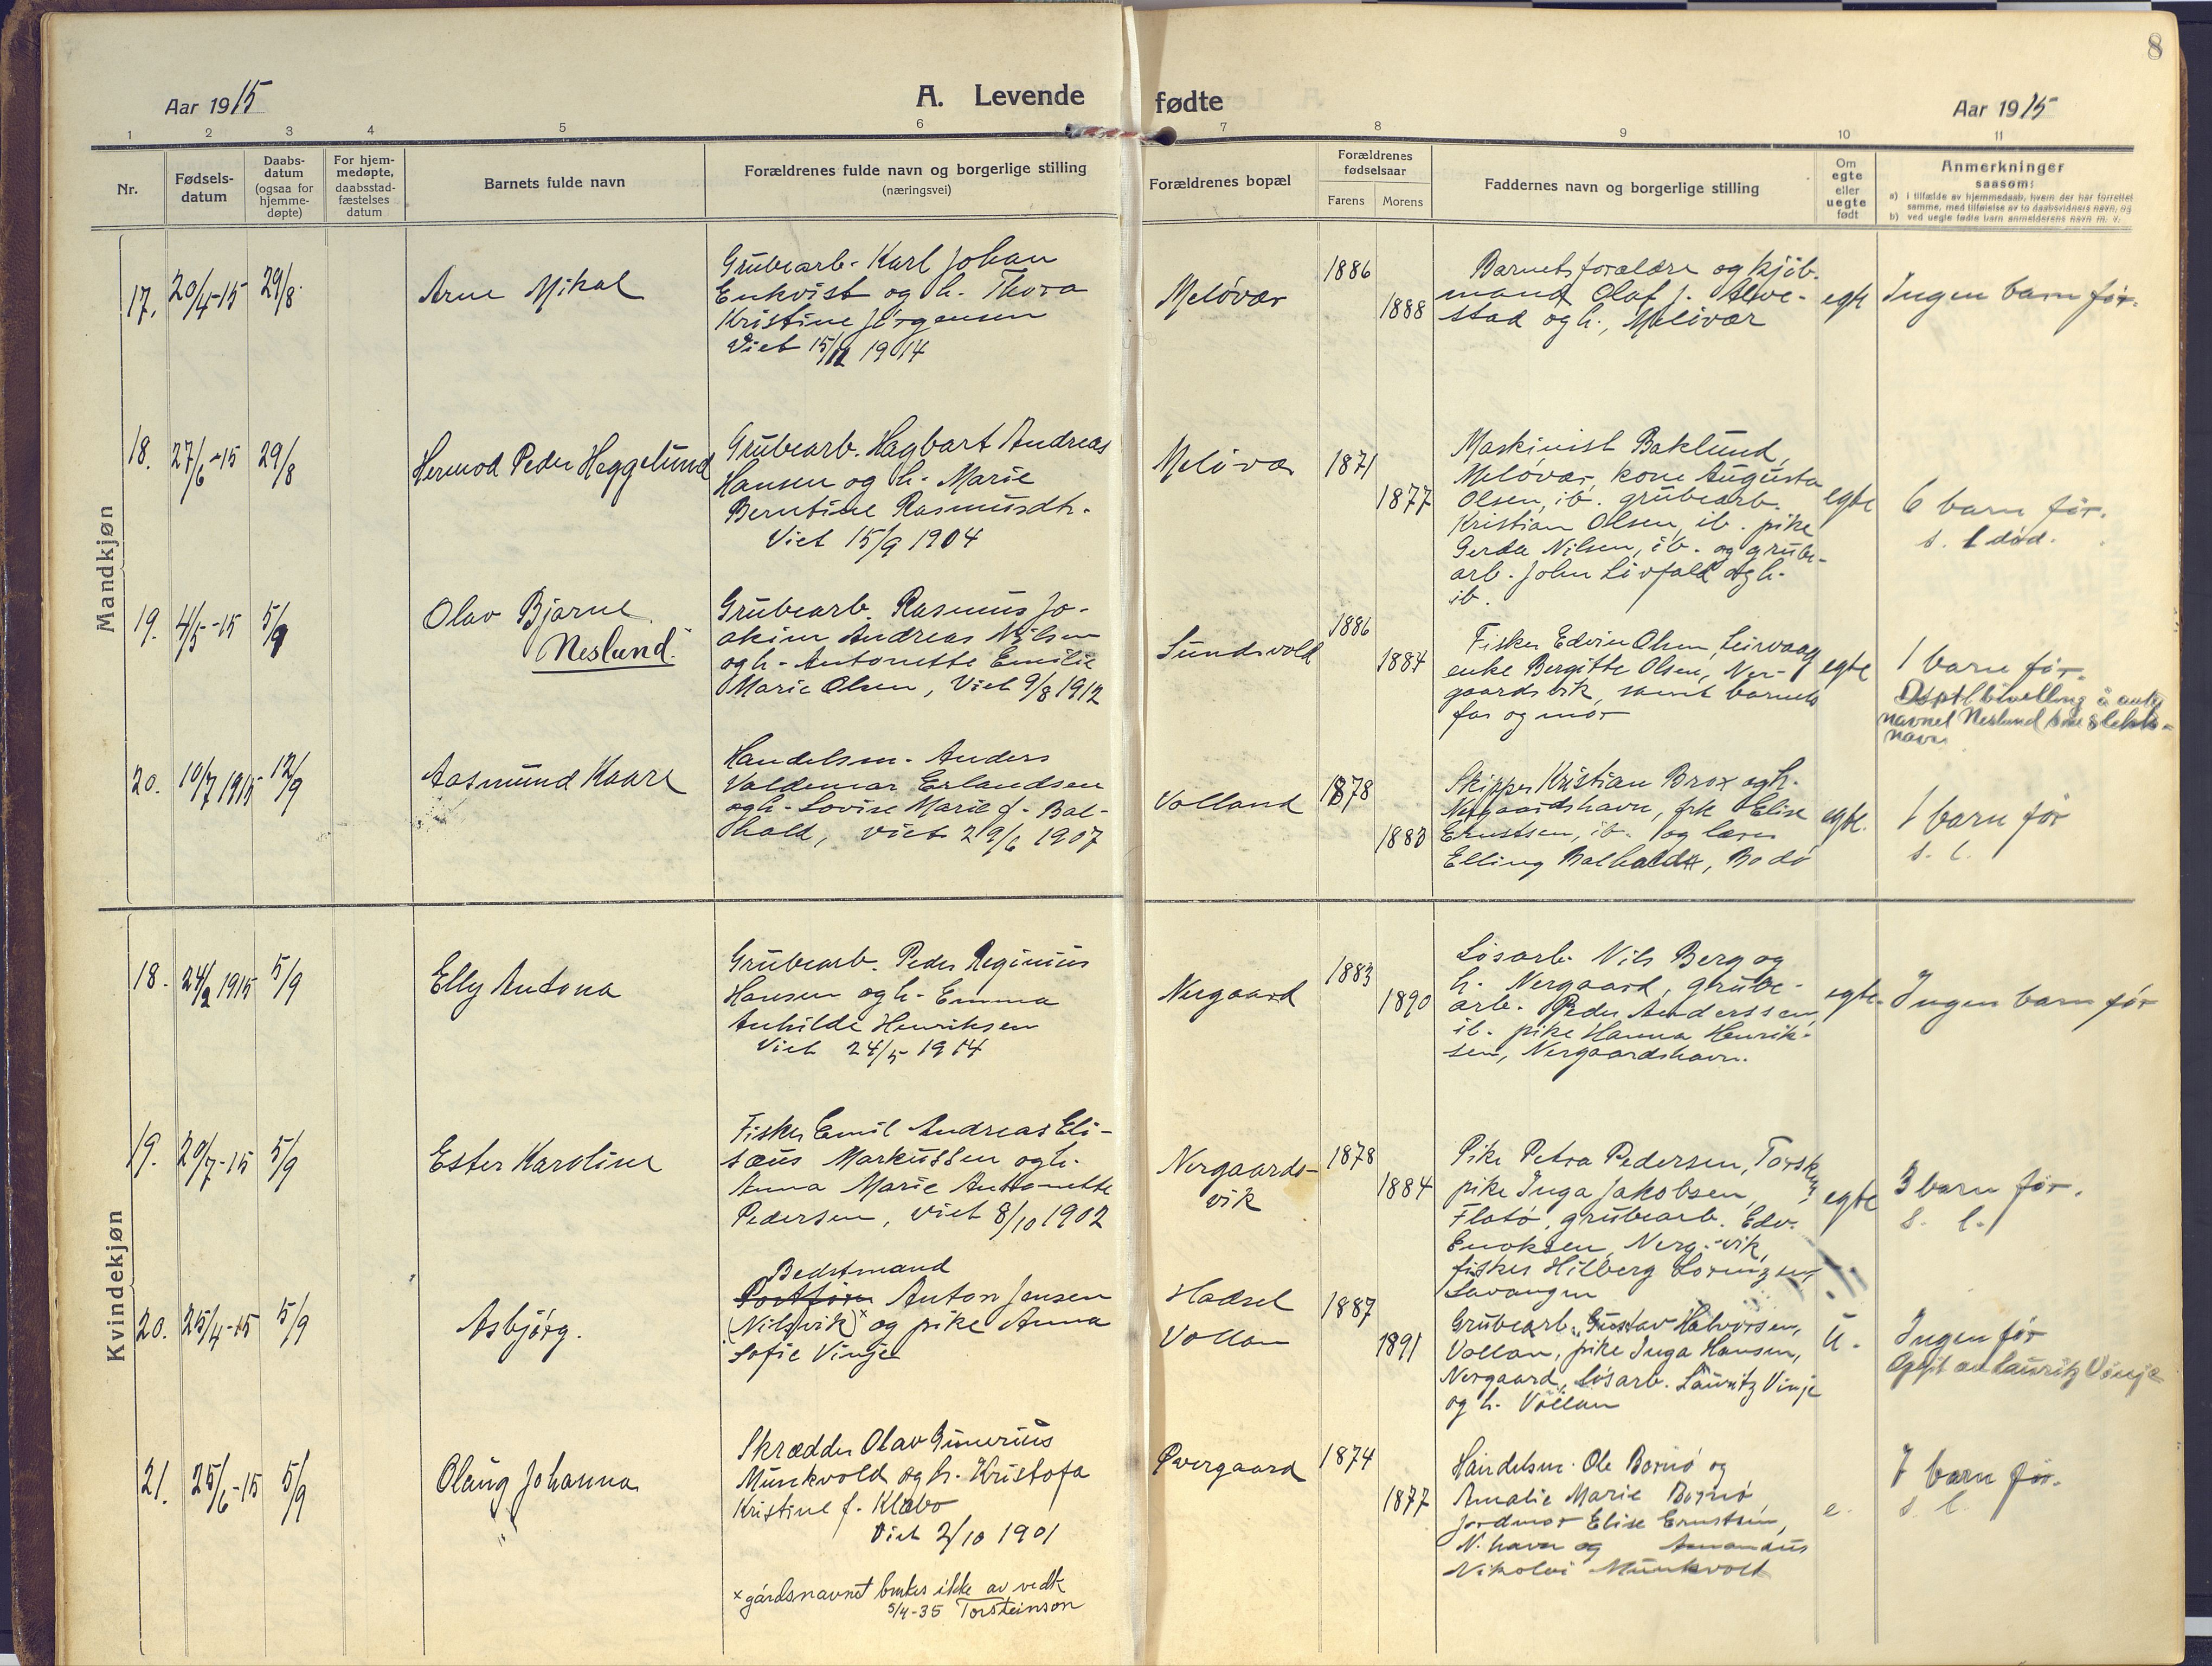 8
Aar 1915
A. Levende fødte
Aar 1915
1 2 3 4 5 6 7 8 9 10 11
Nr.
Fødsels-
datum
Daabs-
datum
(ogsaa for
hjemme-
døpte)
For hjem-
medøpte,
daabsstad-
fæstelses
datum
Barnets fulde navn
Forældrenes fulde navn og borgerlige stilling
(næringsvei)
Forældrenes bopæl
Forældrenes
fødselsaar
Farens Morens
Faddernes navn og borgerlige stilling
Om
egte
eller
uegte
født
Anmerkninger
saasom:
a) i tilfælde av hjemmedaab, hvem der har forrettet
samme, med tilføielse av to daabsvidners navn, og
b) ved uegte fødte barn anmelderens navn m. v.
Mandkjøn
17. 20/4-15 29/8.
Arne Mikal
Grubearb. Karl Johan
Enkvist og h. Thora
Kristine Jörgensen
Viet 15/12 1914
Melövær
1886
1888
Barnets forældre og kjöb-
mand Olaf J. Alve-
stad og h., Melövær
egte
Ingen barn før.
18. 27/6-15 29/8
Hermod Peder Heggelund
Grubearb. Hagbart Andreas
Hansen og h. Marie
Berntine Rasmusdtr.
Viet 15/9 1904
Melövær
1871
1877
Maskinist Baklund,
Melövær, kone Augusta
Olsen, ib. grubearb.
Kristian Olsen, ib. pike
Gerda Nilsen, ib. og grube-
arb. John Livfald og h.
ib.
egte
6 barn før.
s. 1 død.
19. 4/5-15 5/9
Olav Bjarne
Neslund.
Grubearb. Rasmus Jo-
akim Andreas Nilsen
og h. Antonette Emilie
Marie Olsen, Viet 9/8 1912
Sundsvold
1886
1884
Fisker Edvin Olsen, Leirvaag
enke Bergitte Olsen, Ner-
gaardsvik, samt barnets
far og mor
egte
1 barn før.
navnet Neslund som slekts-
navn
20. 10/7 1915 12/9
Aasmund Kaare
Handelsm. Anders
Valdemar Erlandsen
og h. Lovise Marie f. Bal-
hald, viet 29/6 1907
Volland
1878
1883
Skipper Kristian Brox og h.
Nergaardshavn, frk Elise
Ernstsen, ib. og lærer
Elling Balhald, Bodö
egte.
1 barn før
s. l.
Kvindekjøn
18. 24/2 1915 5/9
Elly Antona
Grubearb. Peder Reginius
Hansen og h. Emma
Anhilde Henriksen
Viet 24/5 1914
Nergaard
1883
1890
Lösarb. Nils Berg og
h. Nergaard, grube-
arb. Peder Anderssen
ib. pike Hanna Henrik-
sen, Nergaardshavn.
egte.
Ingen barn før
19. 20/7-15 5/9
Ester Karoline
Fisker Emil Andreas Eli-
sæus Markussen og h.
Anna Marie Anttonette
Pedersen, viet 8/10 1902
Nergaards-
vik
1878
1884
Pike Petra Pedersen, Torsken
pike Inga Jakobsen,
Flatö, grubearb. Edv.
Enoksen, Nerg.-vik,
fisker Hilberg Lorenzen,
Lavangen
egte
3 barn før.
s. l.
20. 25/4-15 5/9
Asbjörg.
Bedstmand
Anton Jensen
(Nilsvik)x og pike Anna
Sofie Vinje
Hadsel
Vollan
1887
1891
Grubearb. Gustav Halvorsen,
Vollan, pike Inga Hansen,
Nergaard, lösarb. Lauritz Vinje
og h. Vollan
U.
Ingen før
Opgit av Lauritz Vinje
21. 25/6-15 5/9
Olaug Johanna
Skrædder Olav Gunerius
Munkvold og h. Kristofa
Kristine f. Klæbo
Viet 2/10 1901
Övergaard
1874
1877
Handelsm. Ole Bornö og
Amalie Marie Bornö,
jordmor Elise Ernstsen,
N. havn og Amandus
Nikolai Munkvold
e.
7 barn før.
s. l.
x gårdsnavnet brukes ikke av vedk
5/4-35 Torsteinson